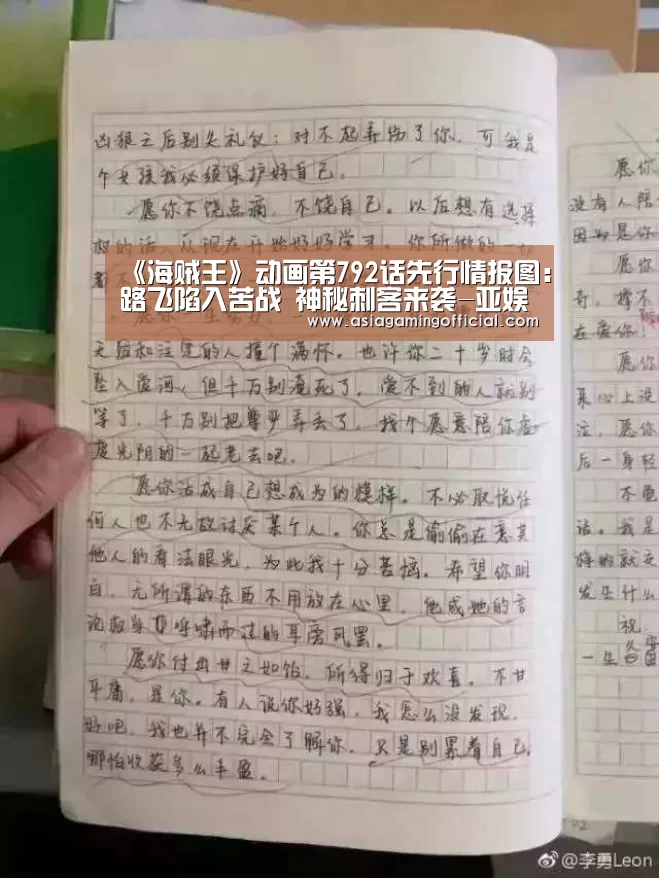 凶狠之后别失礼仪：对不起弄伤了你，可我是
个女孩我必须保护好自己。
愿你不饶点滴，不饶自己。以后想有选择
权的话，从现在开始好好学习，你所做的一切
都不
《海贼王》动画第792话先行情报图：
路飞陷入苦战 神秘刺客来袭—亚娱
www.asiagamingofficial.com
无征和注定的人撞个满怀。也许你二十岁时会
坠入爱河，但千万别淹死了，爱不到的人就别
等了，千万别把尊严弄丢了，找个愿意陪你虚
度光阴的一起老去吧。
愿你活成自己想成为的模样。不必取悦任
何人也不无故讨厌某个人。你总是偷偷在意其
他人的看法眼光，为此我十分苦恼。希望你明
白，无所谓的东西不用放在心里，他或她的言
论权当是呼啸而过的耳旁风罢。
愿你付出甘之如饴，所得归于欢喜。不甘
平庸，是你。有人说你好强，我怎么没发现，
好吧，我也并不完全了解你，只是别累着自己，
哪怕收获多么丰盈。
愿你
没有人陪
因为是你
愿
奇，撑不
在爱你
愿你
来心上没
泣，愿你
后一身轻
不竟
话。我是
样的就交
发生什么
祝
一生
@李勇Leon